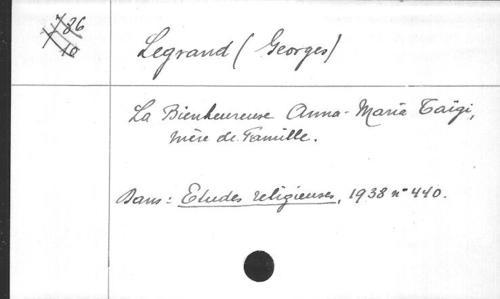 786
10
Legrand (Georges)
La Bienheureuse Anna-Maria Taïgi,
mère de Famille.
Dans : Etudes religieuses, 1938 n° 440.